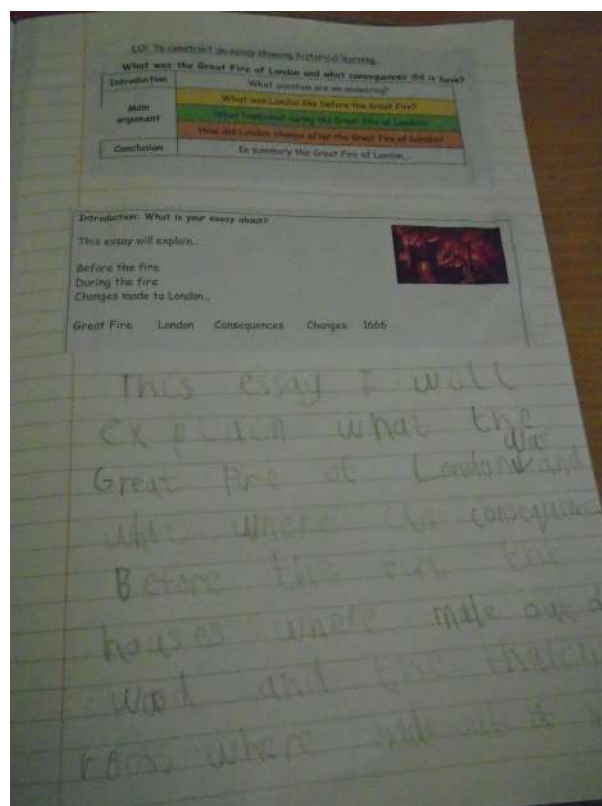 LO: To construct an essay showing historical learning.
What was the Great Fire of London and what consequences did it have?
Introduction
What question are we answering?
Main argument
What was London like before the Great Fire?
What happened during the Great Fire of London?
How did London change after the Great Fire of London?
Conclusion
In summary the Great Fire of London...
Introduction: What is your essay about?
This essay will explain...
Before the fire
During the fire
Changes made to London...
Great Fire London Consequences Changes 1666
This essay I will
explain what the
was
Great fire of London and
where consequences
Before the fire the
houses where made out of
wood and the
roofs where made out of